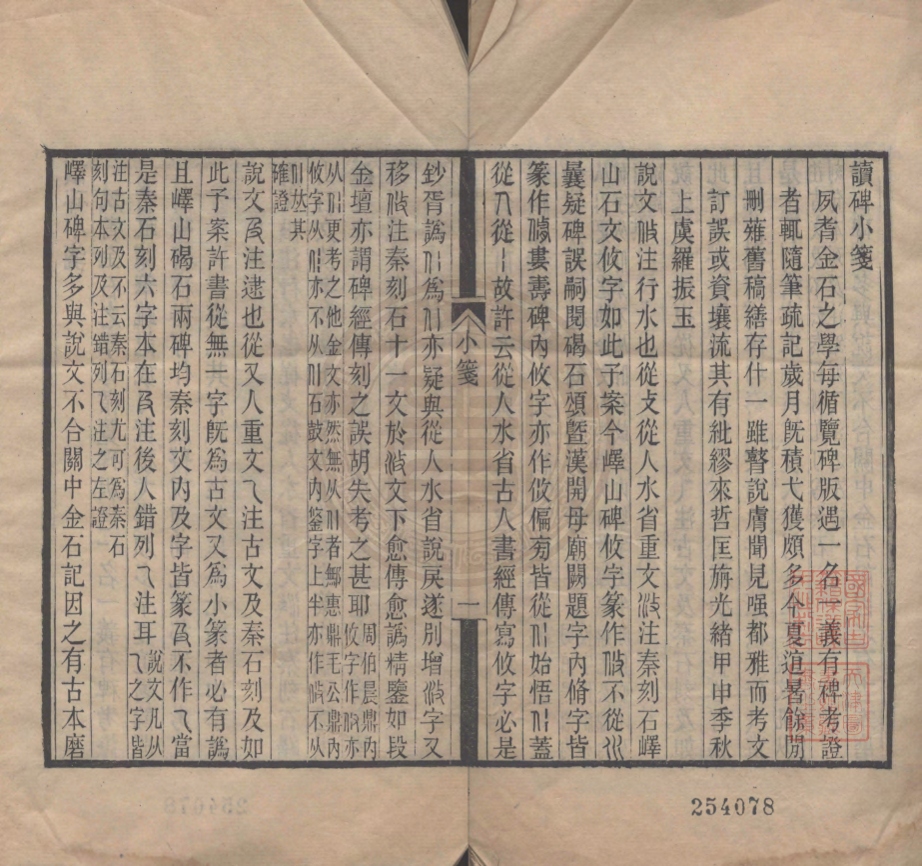 讀碑小箋
夙耆金石之學每循覽碑版遇一名一義有裨考證
者輒隨筆疏記歲月旣積弋獲頗多今夏逭暑餘閒
刪薙舊稿繕存什一雖瞽說膚聞見嗤都雅而考文
訂誤或資壤流其有紕繆來哲匡旃光緒甲申季秋
上虞羅振玉
說文攸注行水也從攴從人水省重文注秦刻石嶧
山石文攸字如此予案今嶧山碑攸字篆作不從
曩疑碑誤嗣閱碣石頌暨漢開母廟闕題字內脩字皆
篆作婁壽碑內攸字亦作偏旁皆從始悟蓋
從從故許云從人水省古人書經傳寫攸字必是
小箋
一
鈔胥譌爲亦疑與從人水省說戾遂別增字又
移注秦刻石十一文於文下愈傳愈譌精鑒如段
金壇亦謂碑經傳刻之誤胡失考之甚耶周伯晨鼎內攸字作亦
从更考之他金文亦然無从者鄦惠鼎毛公鼎內
攸字从亦不从石鼓文內鋚字上半亦作不从
㠯㚘其
確證
說文注逮也從又人重文乁注古文及秦石刻及如
此予案許書從無一字旣爲古文又爲小篆者必有譌
且嶧山碣石兩碑均秦刻文內及字皆篆不作乁當
是秦石刻六字本在注後人錯列乁注耳說文凡从乁之字皆
注古文及不云秦石刻尤可爲秦石
刻句本列及注錯列乁注之左證
嶧山碑字多與說文不合關中金石記因之有古本磨
254078